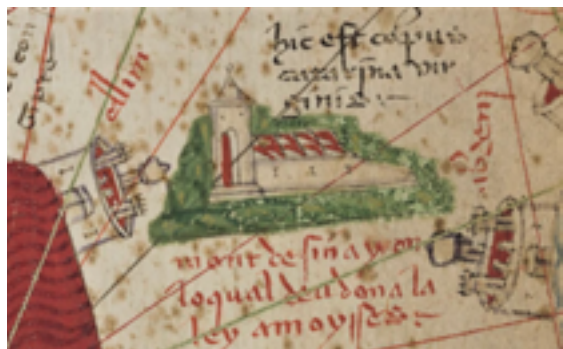 ellim
hic est corpus
catarina vir
ginis
mont de sinay on
loqual deu dona la
ley a moyises